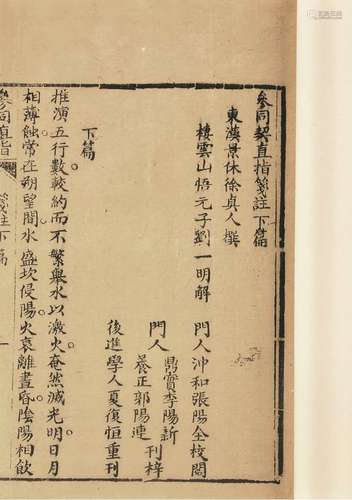 參同契直指箋註下篇
東漢景休徐真人撰
棲雲山悟元子劉一明解 門人沖和張陽全校閱
門人 鼎實李陽新
養正郭陽連 刊梓
後進學人夏復恒重刊
下篇
推演五行數較約而不繁舉水以激火奄然滅光明日月
相薄蝕常在朔望間水盛坎侵陽火衰離晝昏陰陽相飲
參同直指 箋註下篇